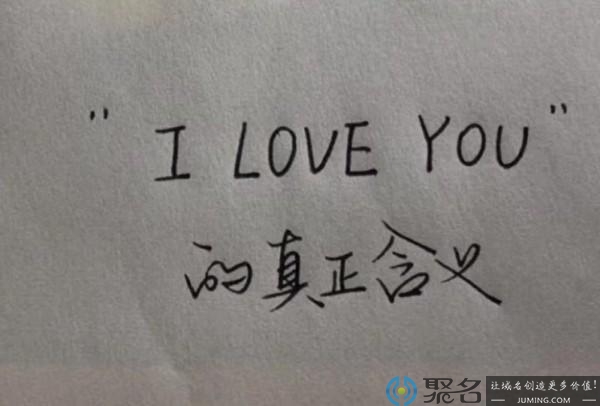 "I LOVE YOU"
的真正含义
聚名
让域名创造更多价值!
JUMING.COM